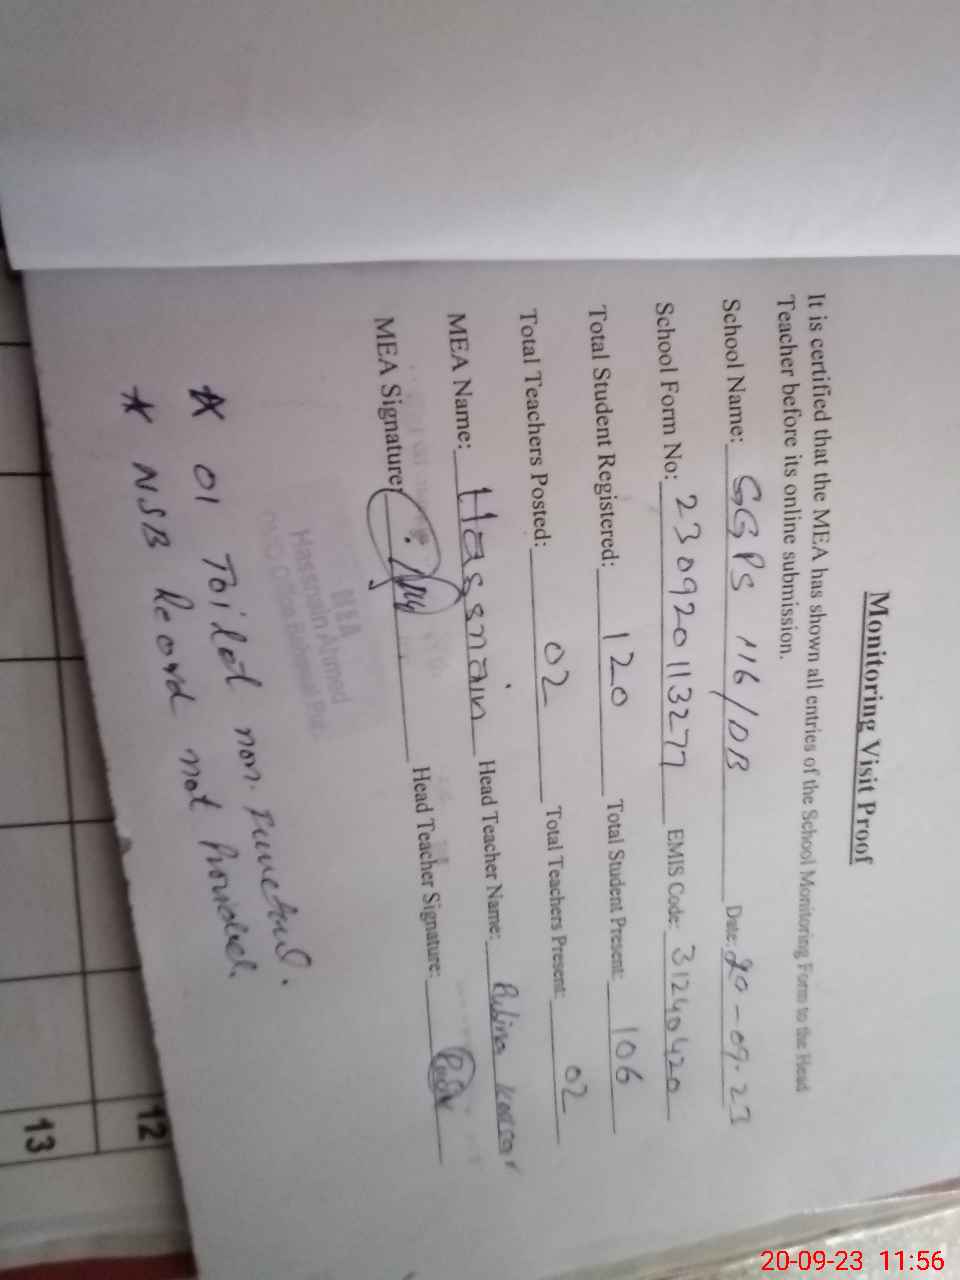 Monitoring Visit Proof
It is certified that the MEA has shown all entries of the School Monitoring Form to the Head
Teacher before its online submission.
School Name: GGPS 116/DB Date: 20-09-23
School Form No: 230920113277 EMIS Code: 31240420
Total Student Registered: 120 Total Student Present: 106
Total Teachers Posted: 02 Total Teachers Present: 02
MEA Name: Hassnain Head Teacher Name: Rubina Kousar
MEA Signature: Head Teacher Signature:
MEA
Hassnain Ahmed
* 01 Toilet non. Functional.
* NSB Record not Provided.
12
13
20-09-23 11:56